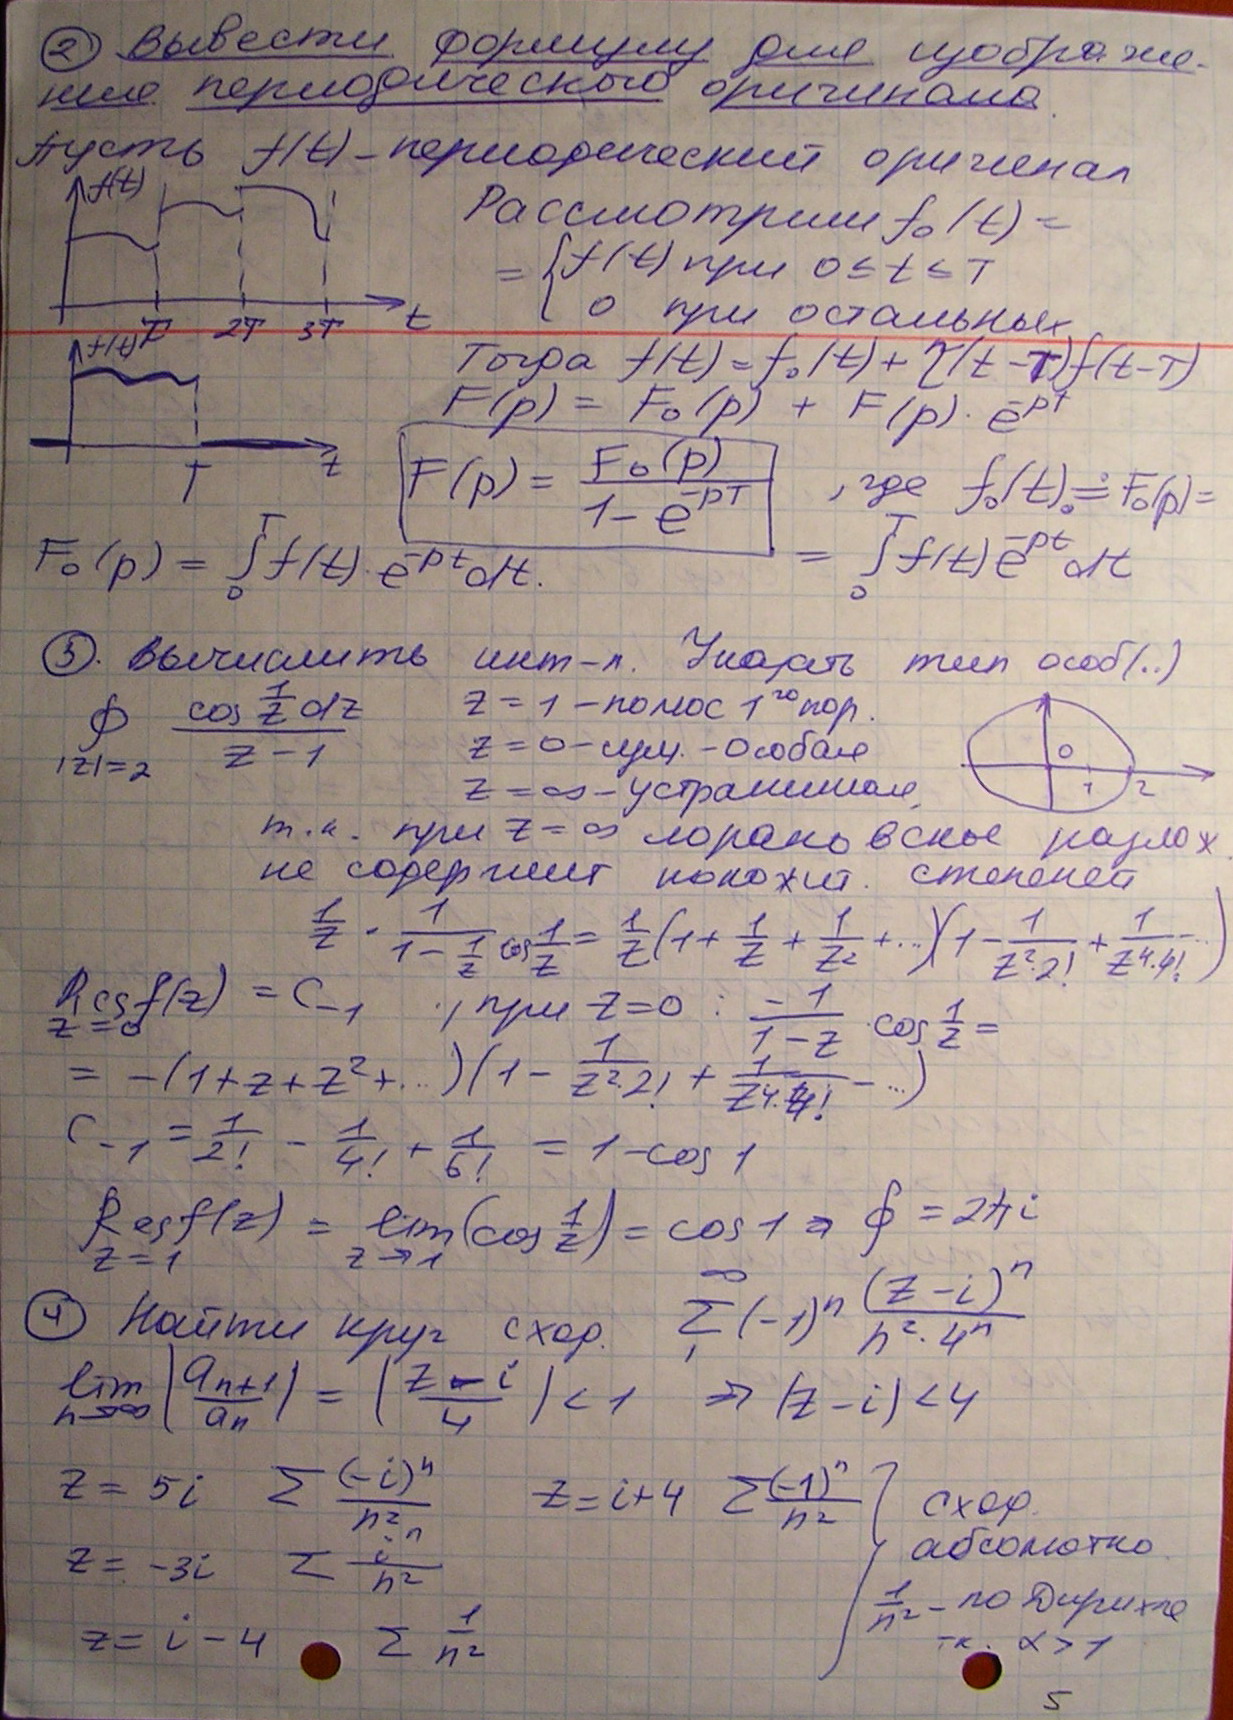 ② Вывести формулу для изображе-
ния периодического оригинала.
Пусть f(t) – периодический оригинал
f(t)
T 2T 3T t
Рассмотрим f₀(t) =
= { f(t) при 0 ≤ t ≤ T
0 при остальных
f(t)
T t
Тогда f(t) = f₀(t) + η(t-T)f(t-T)
F(p) = F₀(p) + F(p)·e^{-pT}
F(p) = F₀(p) / (1 - e^{-pT}) , где f₀(t) ≓ F₀(p) =
F₀(p) = ∫₀^T f(t)·e^{-pt}dt. = ∫₀^T f(t)e^{-pt}dt
③. Вычислить инт-л. Указать тип особ(..)
∮_{|z|=2} cos(1/z) dz / (z-1)
z = 1 – полюс 1го пор.
z = 0 – сущ. – особая
z = ∞ – устранимая,
0 1 2
т.к. при z = ∞ лорановские разлож.
не содержит положит. степеней
1/z · 1/(1 - 1/z) cos 1/z = 1/z (1 + 1/z + 1/z² + ...)(1 - 1/(z²·2!) + 1/(z⁴·4!) - ...)
Res_{z=0} f(z) = C₋₁ , при z=0 : -1/(1-z) · cos 1/z =
= -(1 + z + z² + ...)(1 - 1/(z²·2!) + 1/(z⁴·4!) - ...)
C₋₁ = 1/2! - 1/4! + 1/6! = 1 - cos 1
Res_{z=1} f(z) = lim_{z→1} (cos 1/z) = cos 1 ⇒ ∮ = 2πi
④ Найти круг сход. Σ₁^∞ (-1)ⁿ (z-i)ⁿ / (n²·4ⁿ)
lim_{n→∞} |aₙ₊₁/aₙ| = |(z-i)/4| < 1 ⇒ |z-i| < 4
z = 5i Σ (-i)ⁿ/n² z = i+4 Σ (-1)ⁿ/n²
z = -3i Σ iⁿ/n²
z = i-4 Σ 1/n²
} сход.
абсолютно
1/n² – по Дирихле
т.к. α > 1
5